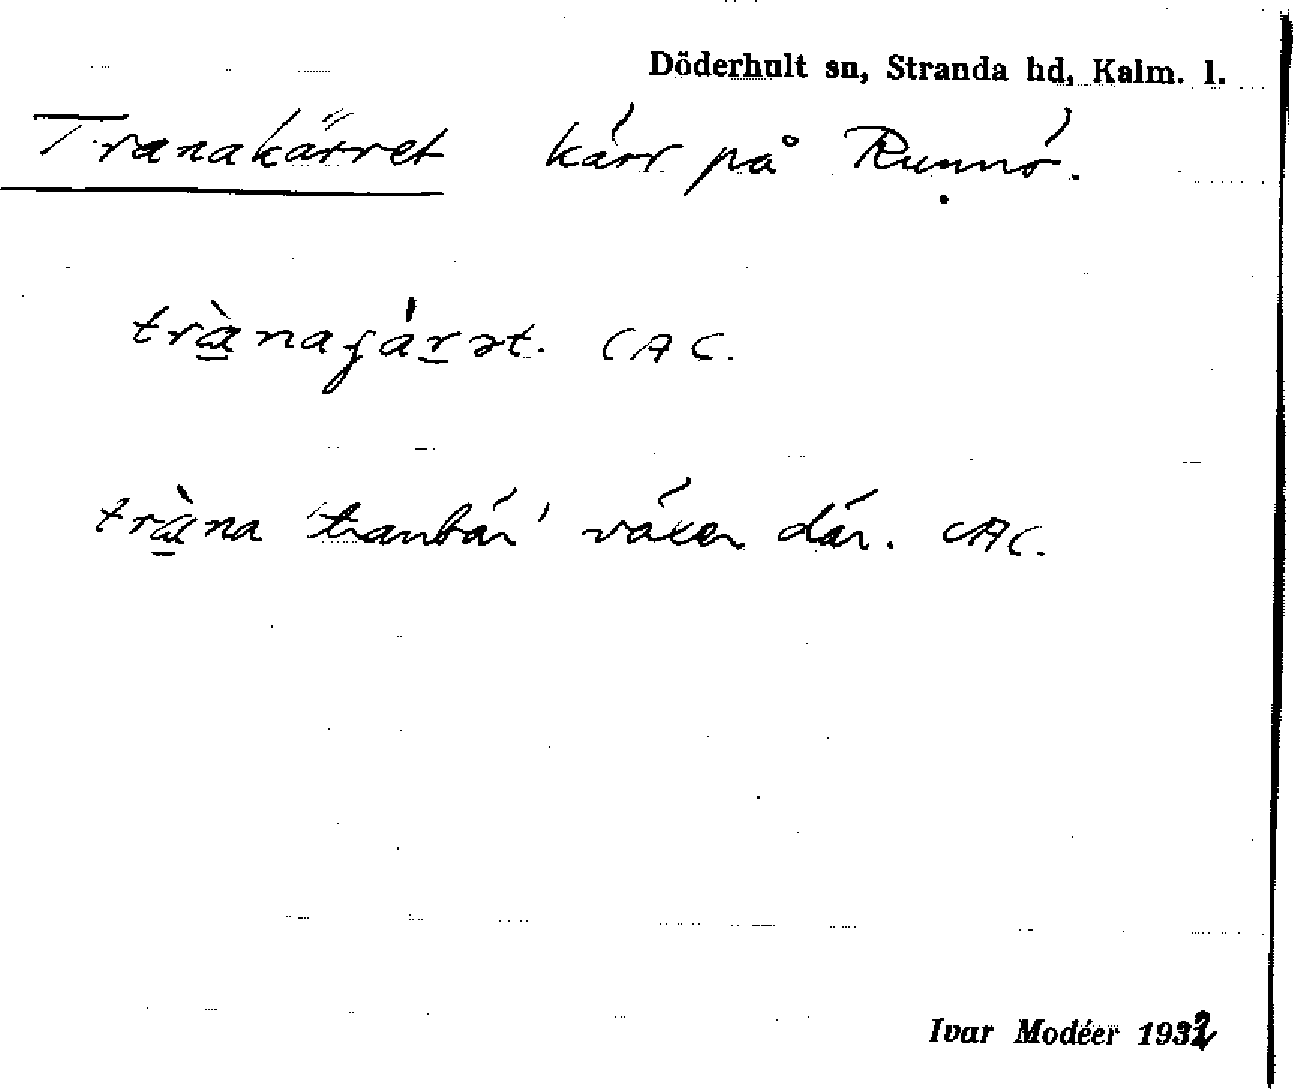 Döderhult sn, Stranda hd, Kalm. l.
Tranakärret kärr på Runnö.
trà̱naʄáṟət. CAC.
trà̱na 'tranbär' växer där. CAC.
Ivar Modéer 1932